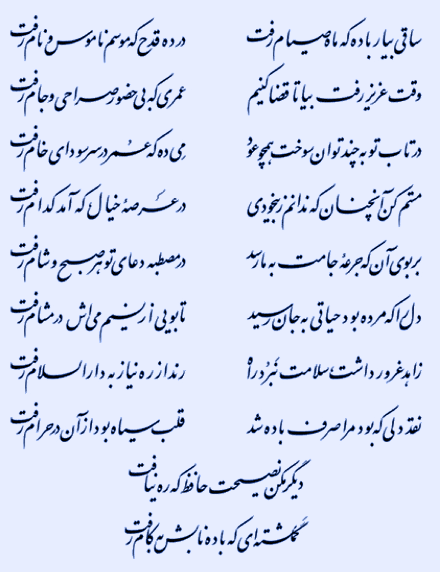 ساقی بیار باده که ماه صیام رفت
درده قدح که موسم ناموس و نام رفت
وقت عزیز رفت بیا تا قضا کنیم
عمری که بی حضور صراحی و جام رفت
در تاب توبه چند توان سوخت همچو عود
می ده که عمر در سر سودای خام رفت
مستم کن آنچنان که ندانم ز بیخودی
در عرصه خیال که آمد کدام رفت
بر بوی آن که جرعه جامت به ما رسد
در مصطبه دعای تو هر صبح و شام رفت
دل را که مرده بود حیاتی به جان رسید
تا بویی از نسیم می‌اش در مشام رفت
زاهد غرور داشت سلامت نبرد راه
رند از ره نیاز به دارالسلام رفت
نقد دلی که بود مرا صرف باده شد
قلب سیاه بود از آن در حرام رفت
دیگر مکن نصیحت حافظ که ره نیافت
گمگشته‌ای که باده نابش به کام رفت